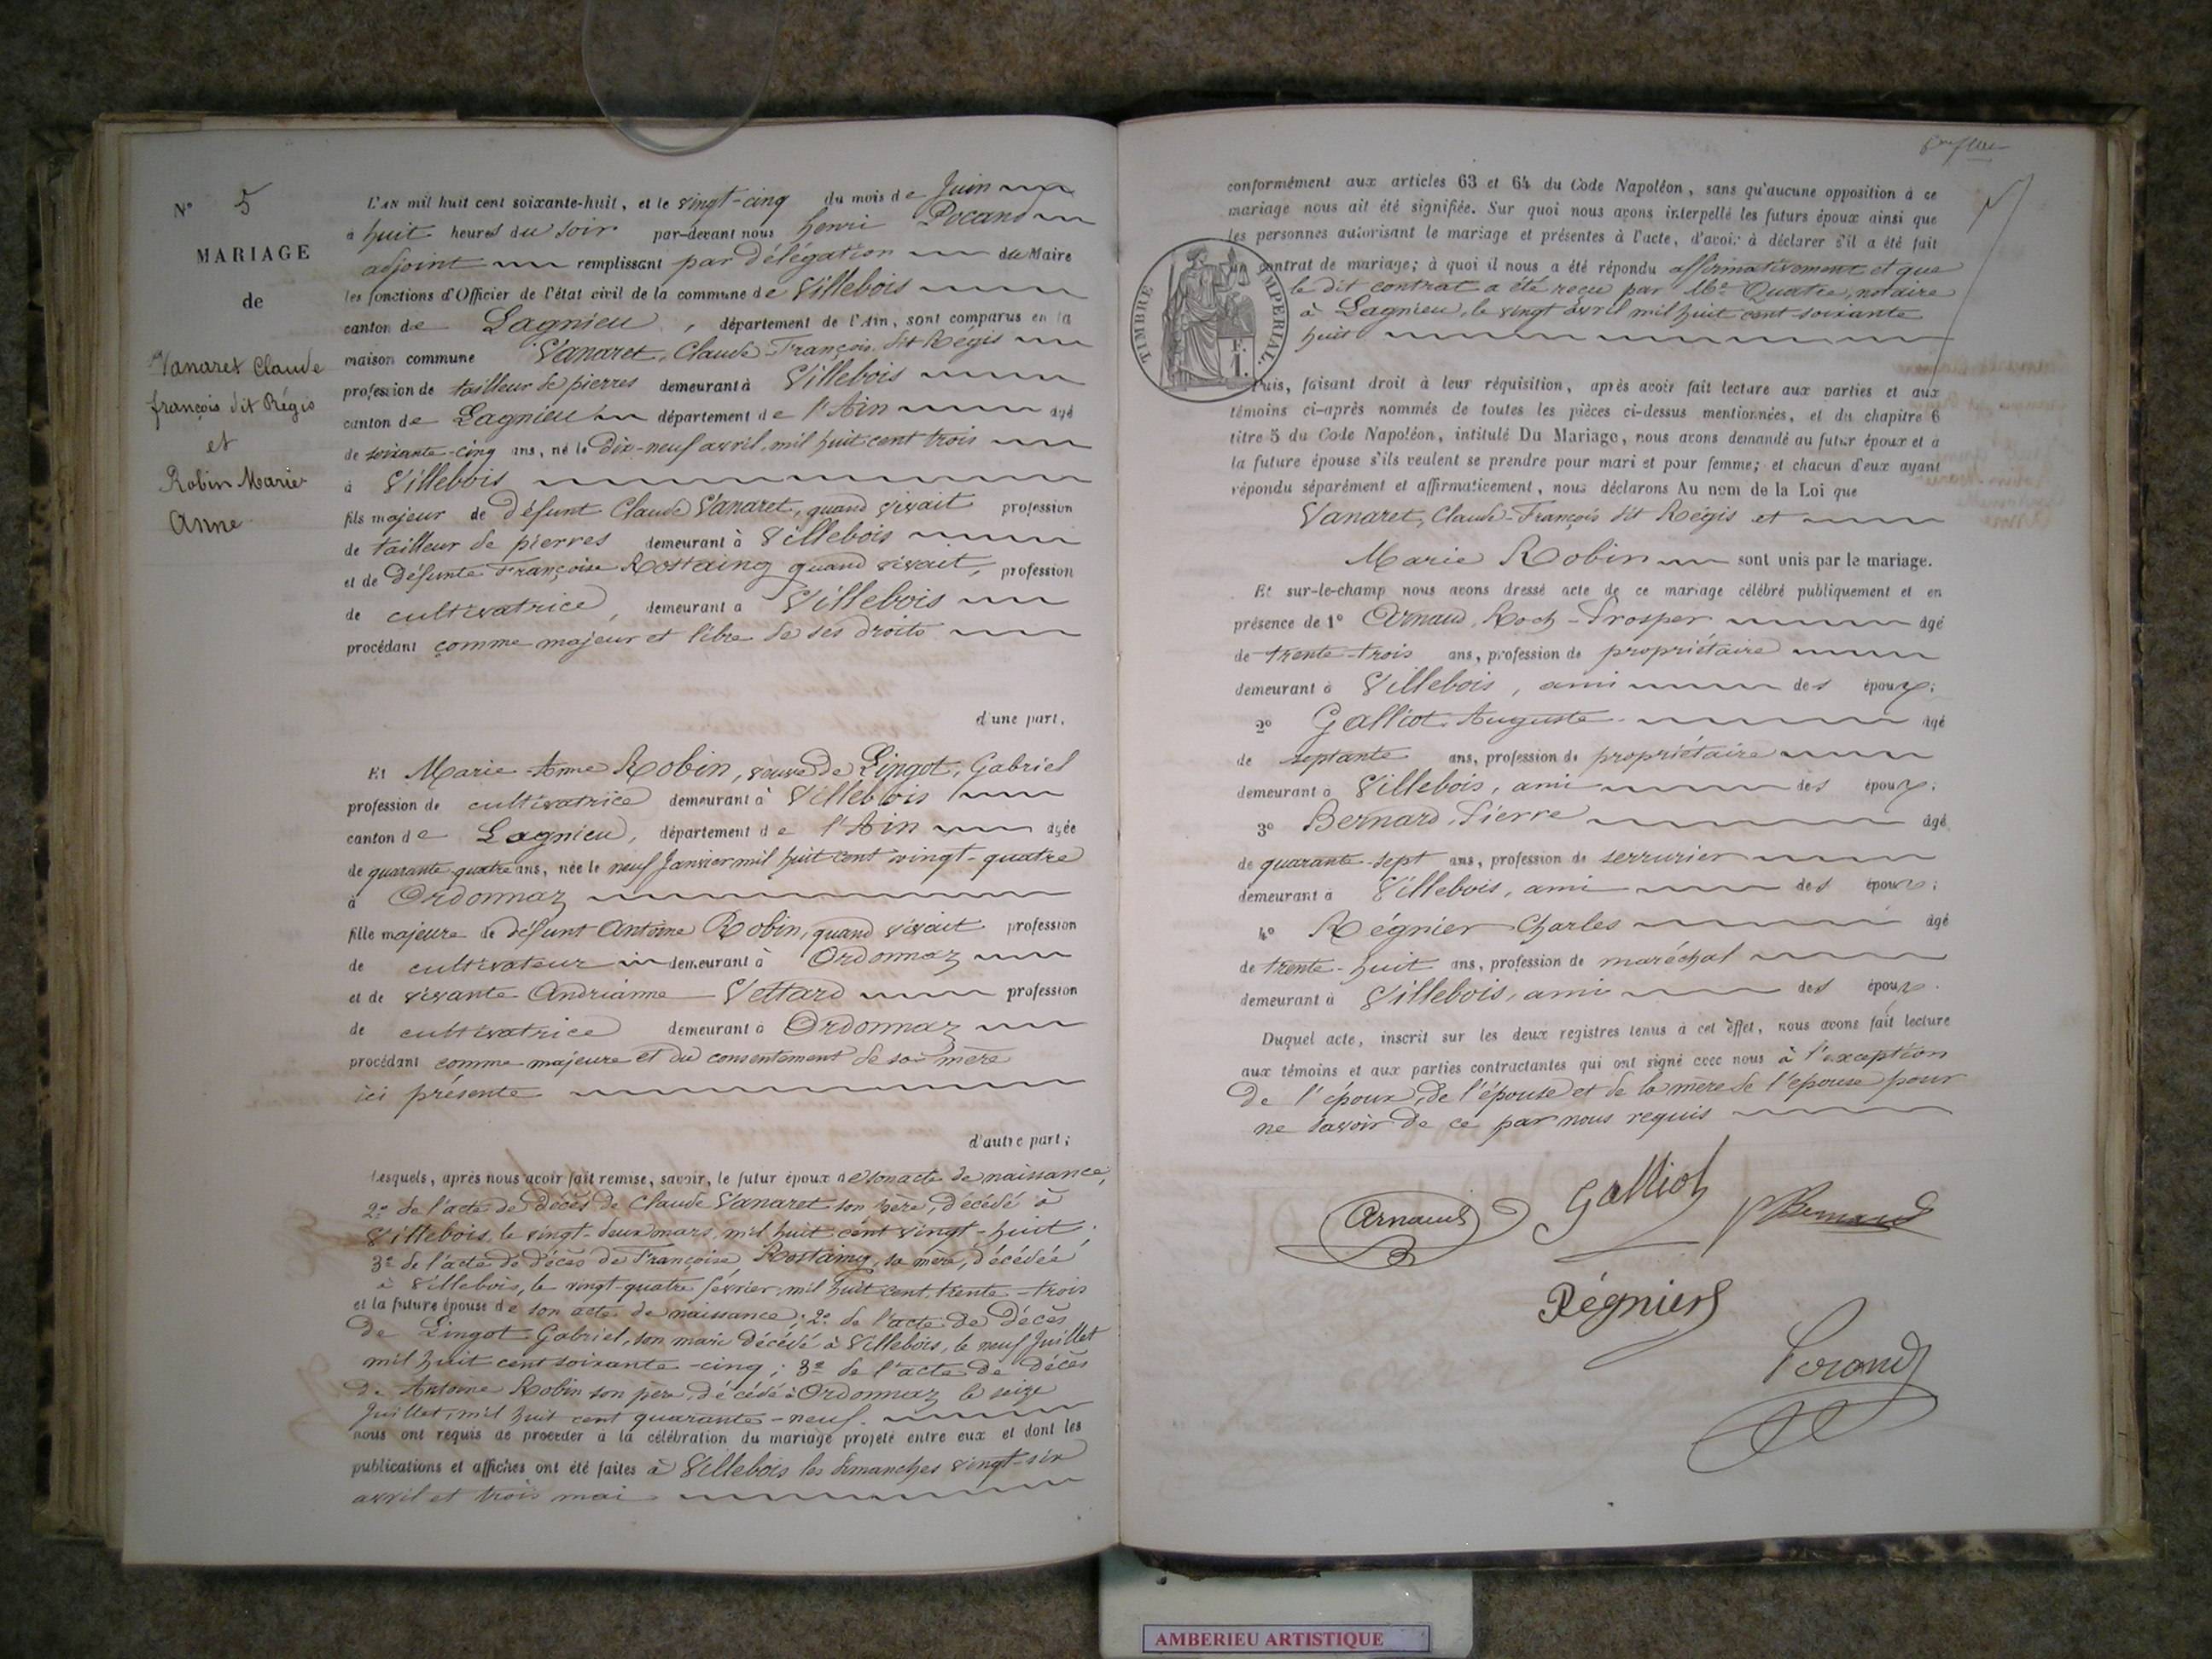 N° 5
MARIAGE
de
Vanaret Claude
françois dit Régis
et
Robin Marie
Anne
L'AN mil huit cent soixante-huit, et le vingt-cinq du mois de Juin
à huit heures du soir par-devant nous henri
adjoint remplissant par délégation du Maire
les fonctions d'Officier de l'état civil de la commune de Villebois
canton de Lagnieu, département de l'Ain, sont comparus en la
maison commune Vanaret, Claude-François dit Régis
profession de tailleur de pierres demeurant à Villebois
canton de Lagnieu département de l'Ain âgé
de soixante-cinq ans, né le Dix-neuf avril, mil huit cent trois
à Villebois
fils majeur de défunt Claude Vanaret, quand vivait profession
de tailleur de pierres demeurant à Villebois
et de défunte Françoise Rostaing quand vivait, profession
de cultivatrice, demeurant à Villebois
procédant comme majeur et libre de ses droits
d'une part.
Et Marie-Anne Robin, veuve de Lingot, Gabriel
profession de cultivatrice demeurant à Villebois
canton de Lagnieu, département de l'Ain âgée
de quarante quatre ans, née le neuf Janvier mil huit cent vingt-quatre
à Ordonnaz
fille majeure de défunt Antoine Robin, quand vivait profession
de cultivateur demeurant à Ordonnaz
et de vivante Andrianne Vettard profession
de cultivatrice demeurant à Ordonnaz
procédant comme majeure et du consentement de sa mère
ici présente
d'autre part;
Lesquels, après nous avoir fait remise, savoir, le futur époux de son acte de naissance,
2° de l'acte de décès de Claude Vanaret son père, décédé à
Villebois, le vingt-deux mars, mil huit cent vingt-huit;
3° de l'acte de décès de Françoise Rostaing, sa mère, décédée
à Villebois, le vingt-quatre février, mil huit cent trente-trois
et la future épouse de son acte de naissance; 2° de l'acte de décès
de Lingot Gabriel, son mari décédé à Villebois, le neuf Juillet
mil huit cent soixante-cinq; 3° de l'acte de décès
de Antoine Robin son père, décédé à Ordonnaz le seize
Juillet, mil huit cent quarante-neuf.
nous ont requis de procéder à la célébration du mariage projeté entre eux et dont les
publications et affiches ont été faites à Villebois les dimanches vingt-six
avril et trois mai
conformément aux articles 63 et 64 du Code Napoléon, sans qu'aucune opposition à ce
mariage nous ait été signifiée. Sur quoi nous avons interpellé les futurs époux ainsi que
les personnes autorisant le mariage et présentes à l'acte, d'avoir à déclarer s'il a été fait
contrat de mariage; à quoi il nous a été répondu affirmativement et que
le dit contrat a été reçu par Me Quatre, notaire
à Lagnieu, le vingt avril mil huit cent soixante
huit
TIMBRE IMPERIAL.
F.
1.
Puis, faisant droit à leur réquisition, après avoir fait lecture aux parties et aux
témoins ci-après nommés de toutes les pièces ci-dessus mentionnées, et du chapitre 6
titre 5 du Code Napoléon, intitulé Du Mariage, nous avons demandé au futur époux et à
la future épouse s'ils veulent se prendre pour mari et pour femme; et chacun d'eux ayant
répondu séparément et affirmativement, nous déclarons Au nom de la Loi que
Vanaret, Claude-François dit Régis et
Marie Robin sont unis par le mariage.
Et sur-le-champ nous avons dressé acte de ce mariage célébré publiquement et en
présence de 1° Arnaud, Roch-Prosper âgé
de trente-trois ans, profession de propriétaire
demeurant à Villebois, ami des époux;
2° Galliot Auguste âgé
de septante ans, profession de propriétaire
demeurant à Villebois, ami des époux;
3° Bernard, Pierre âgé
de quarante-sept ans, profession de serrurier
demeurant à Villebois, ami des époux;
4° Régnier Charles âgé
de trente-huit ans, profession de maréchal
demeurant à Villebois, ami des époux.
Duquel acte, inscrit sur les deux registres tenus à cet effet, nous avons fait lecture
aux témoins et aux parties contractantes qui ont signé avec nous à l'exception
de l'époux, de l'épouse et de la mère de l'épouse pour
ne savoir de ce par nous requis
Arnaud Galliot P Bernard
Régnier
AMBERIEU ARTISTIQUE